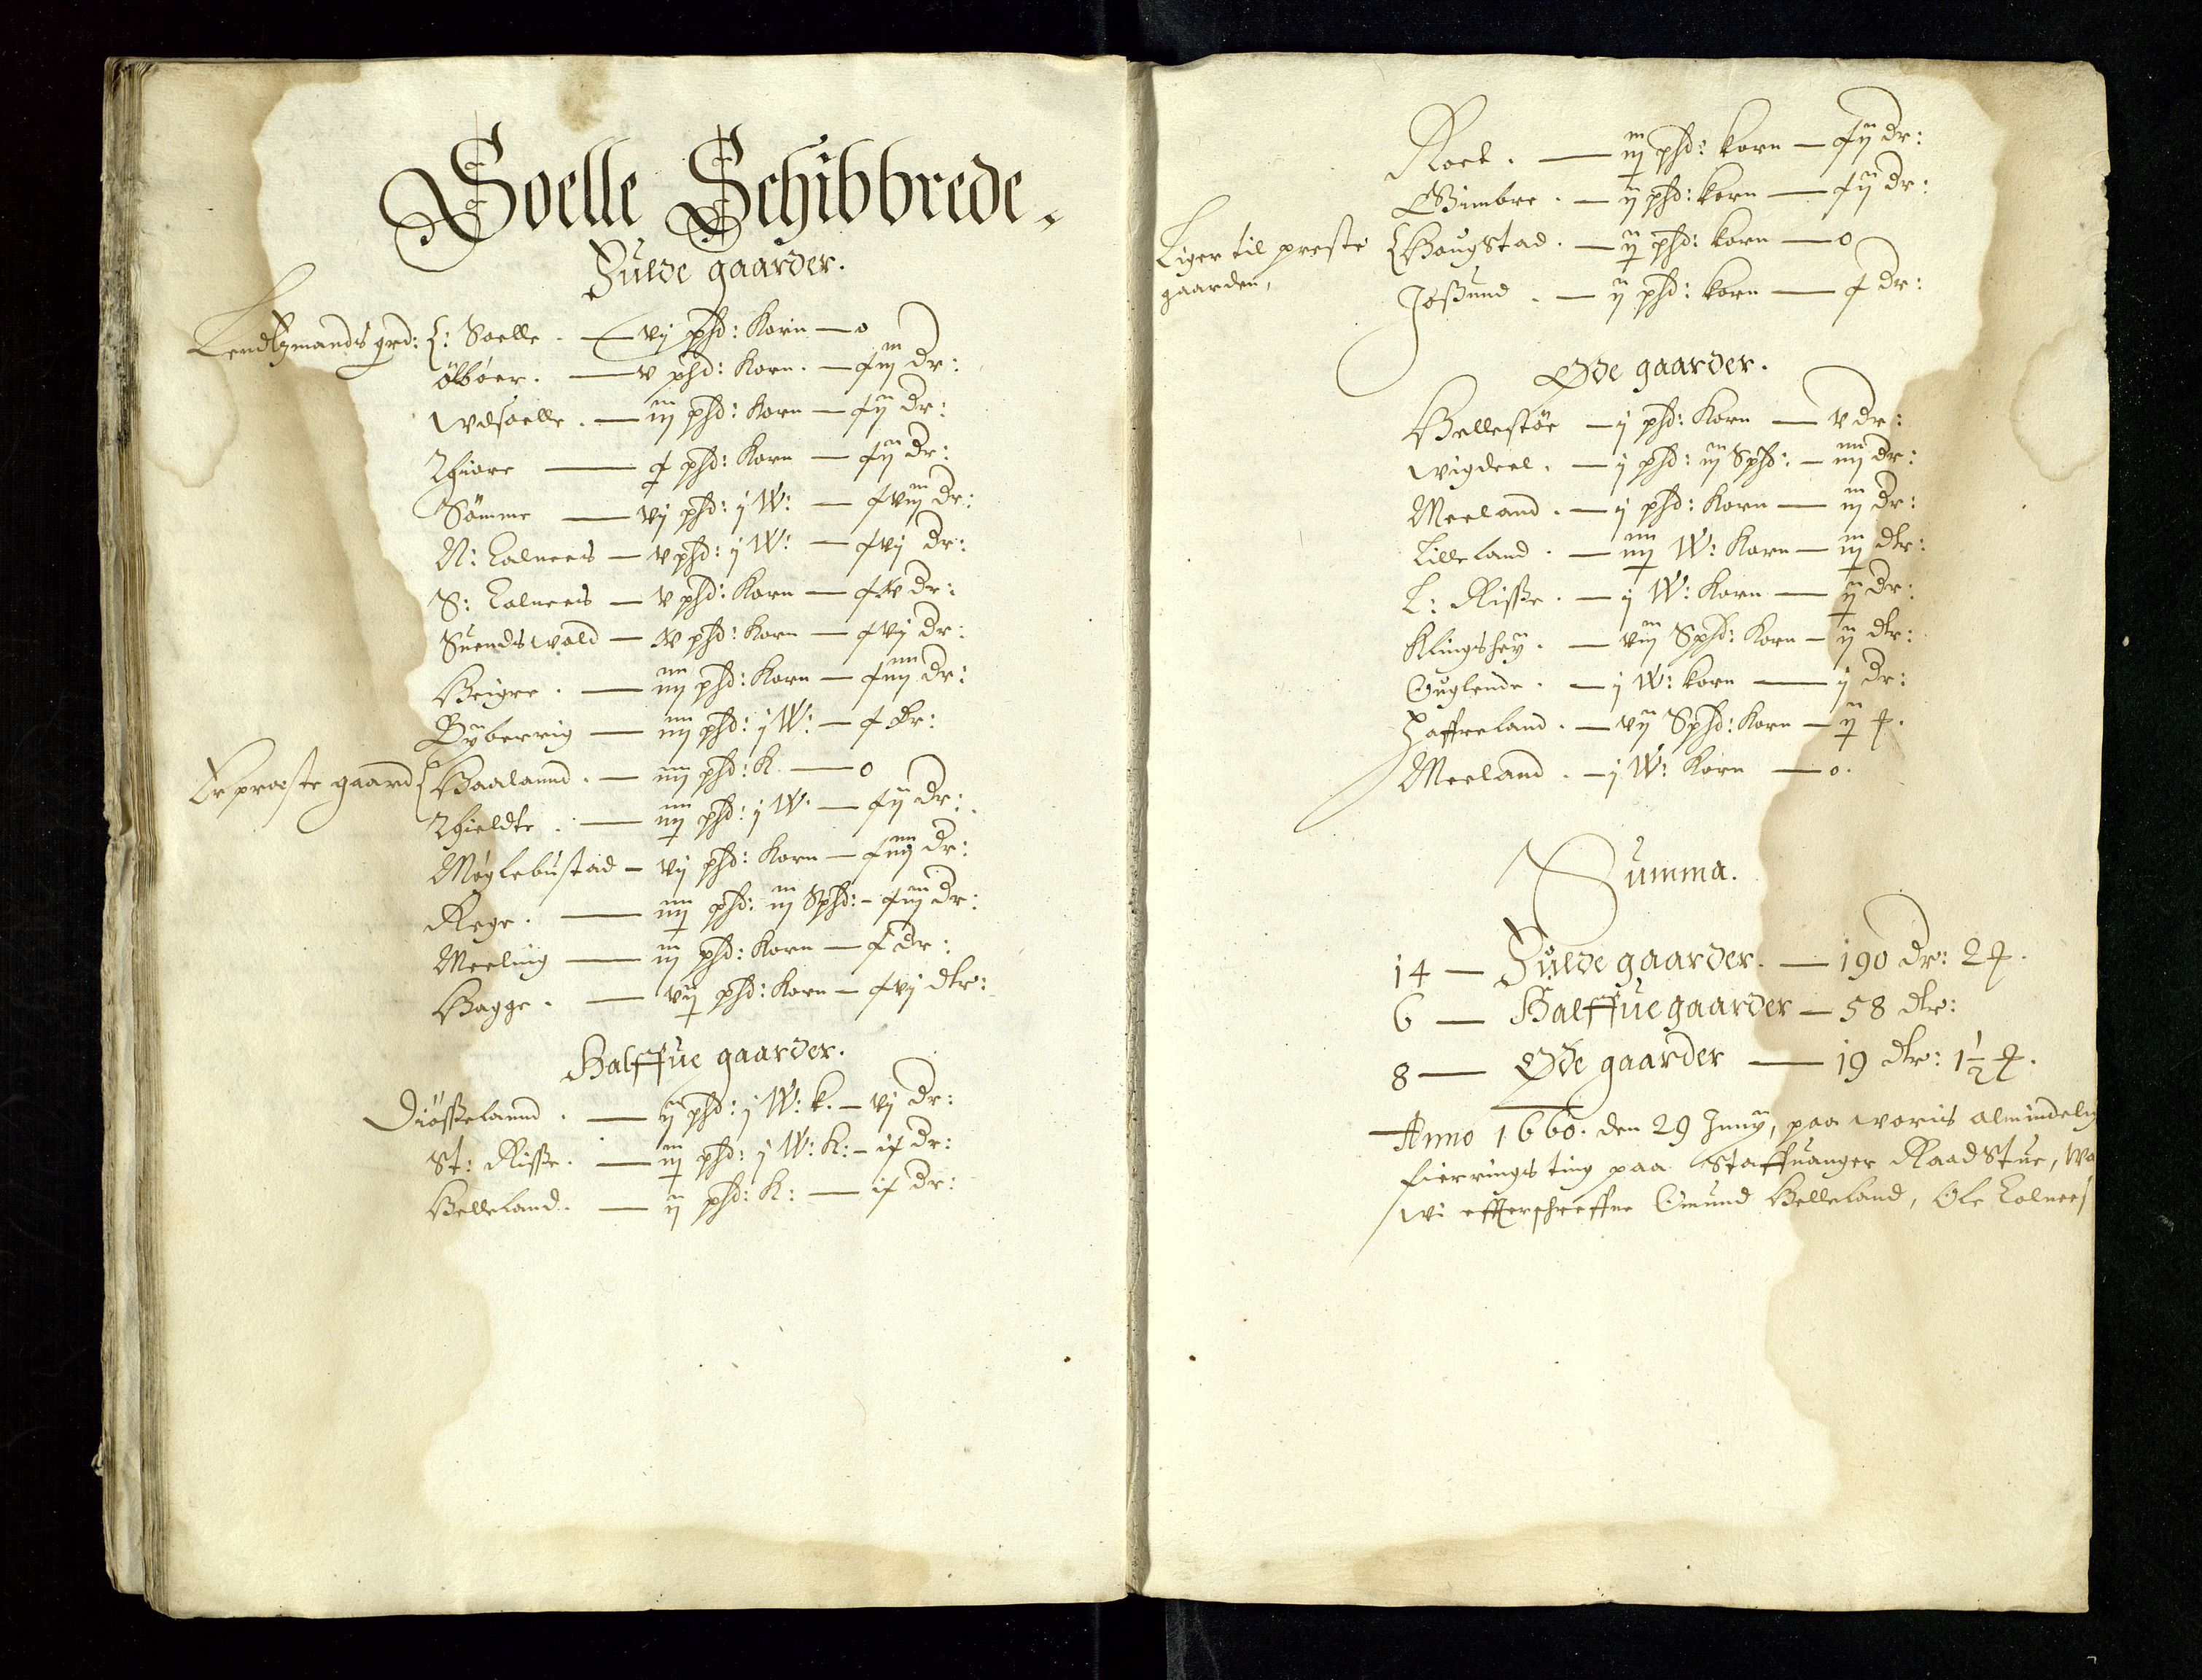 Soelle Schibbrede.
Fulde gaarder.
Lendtzmands grd: [: Soelle. — vj phd: Korn — 0
Ölböer. — v phd: Korn. — xiij dr:
Wdsoelle. — iij phd: Korn — xij dr:
Thiore — x phd: Korn — xij dr:
Sömme — vj phd: j W: — xviij dr:
N: Colnees — v phd: j W: — xvj dr:
S: Colnees — v phd: Korn — xv dr:
Suendswold — v phd: Korn — xvj dr:
Heigre. — iiij phd: Korn — xiiij dr:
Byberrig — iiij phd: j W: — x dr:
Er præste gaard [ Haalannd. — iiij phd: K — 0
Thieldte. — iiij phd: j W: — xij dr:
Møglebustad — vj phd: Korn — xiiij dr:
Rege. — iiij phd: iij Sphd: — xiij dr:
Meeling — iij phd: Korn — x dr:
Hagge. — vij phd: Korn — xvj dlr:
Halffue gaarder.
Diösselannd. — ij phd: j W: k. — vj dr:
St: Risse. — iij phd: j W: K: — ix dr:
Helleland. — ij phd: K: — ix dr:
Roet. — iij phd: korn — xij dr:
Gimbre. — ij phd: korn — xij dr:
Liger til preste gaarden, [ Haugstad. — ij phd: korn — 0
Joßund. — ij phd: korn — x dr:
Øde gaarder.
Hellestöe — j phd: Korn — v dr:
Wigdeel. — j phd: iij Sphd: — iiij dr:
Meeland. — j phd: Korn — iij dr:
Lilleland. — iiij W: Korn — iij dlr:
L: Risse. — j W: Korn — ij dr:
Klingshey. — viij Sphd: Korn — ij dlr:
Ouglende. — j W: korn — j dr:
Haffreland. — vij Sphd: Korn — ij ꝑ.
Meeland. — j W: Korn — 0.
Summa.
14 — Fulde gaarder. — 190 dr: 2 ꝑ.
6 — Halffue gaarder — 58 dlr:
8 — Øde gaarder — 19 dlr: 1½ ꝑ.
Anno 1660. den 29 Junij, paa woris almindelig
fierrings ting paa Staffuanger Raadstue, Wa
wi effterschreffne Omund Helleland, Ole Colnees